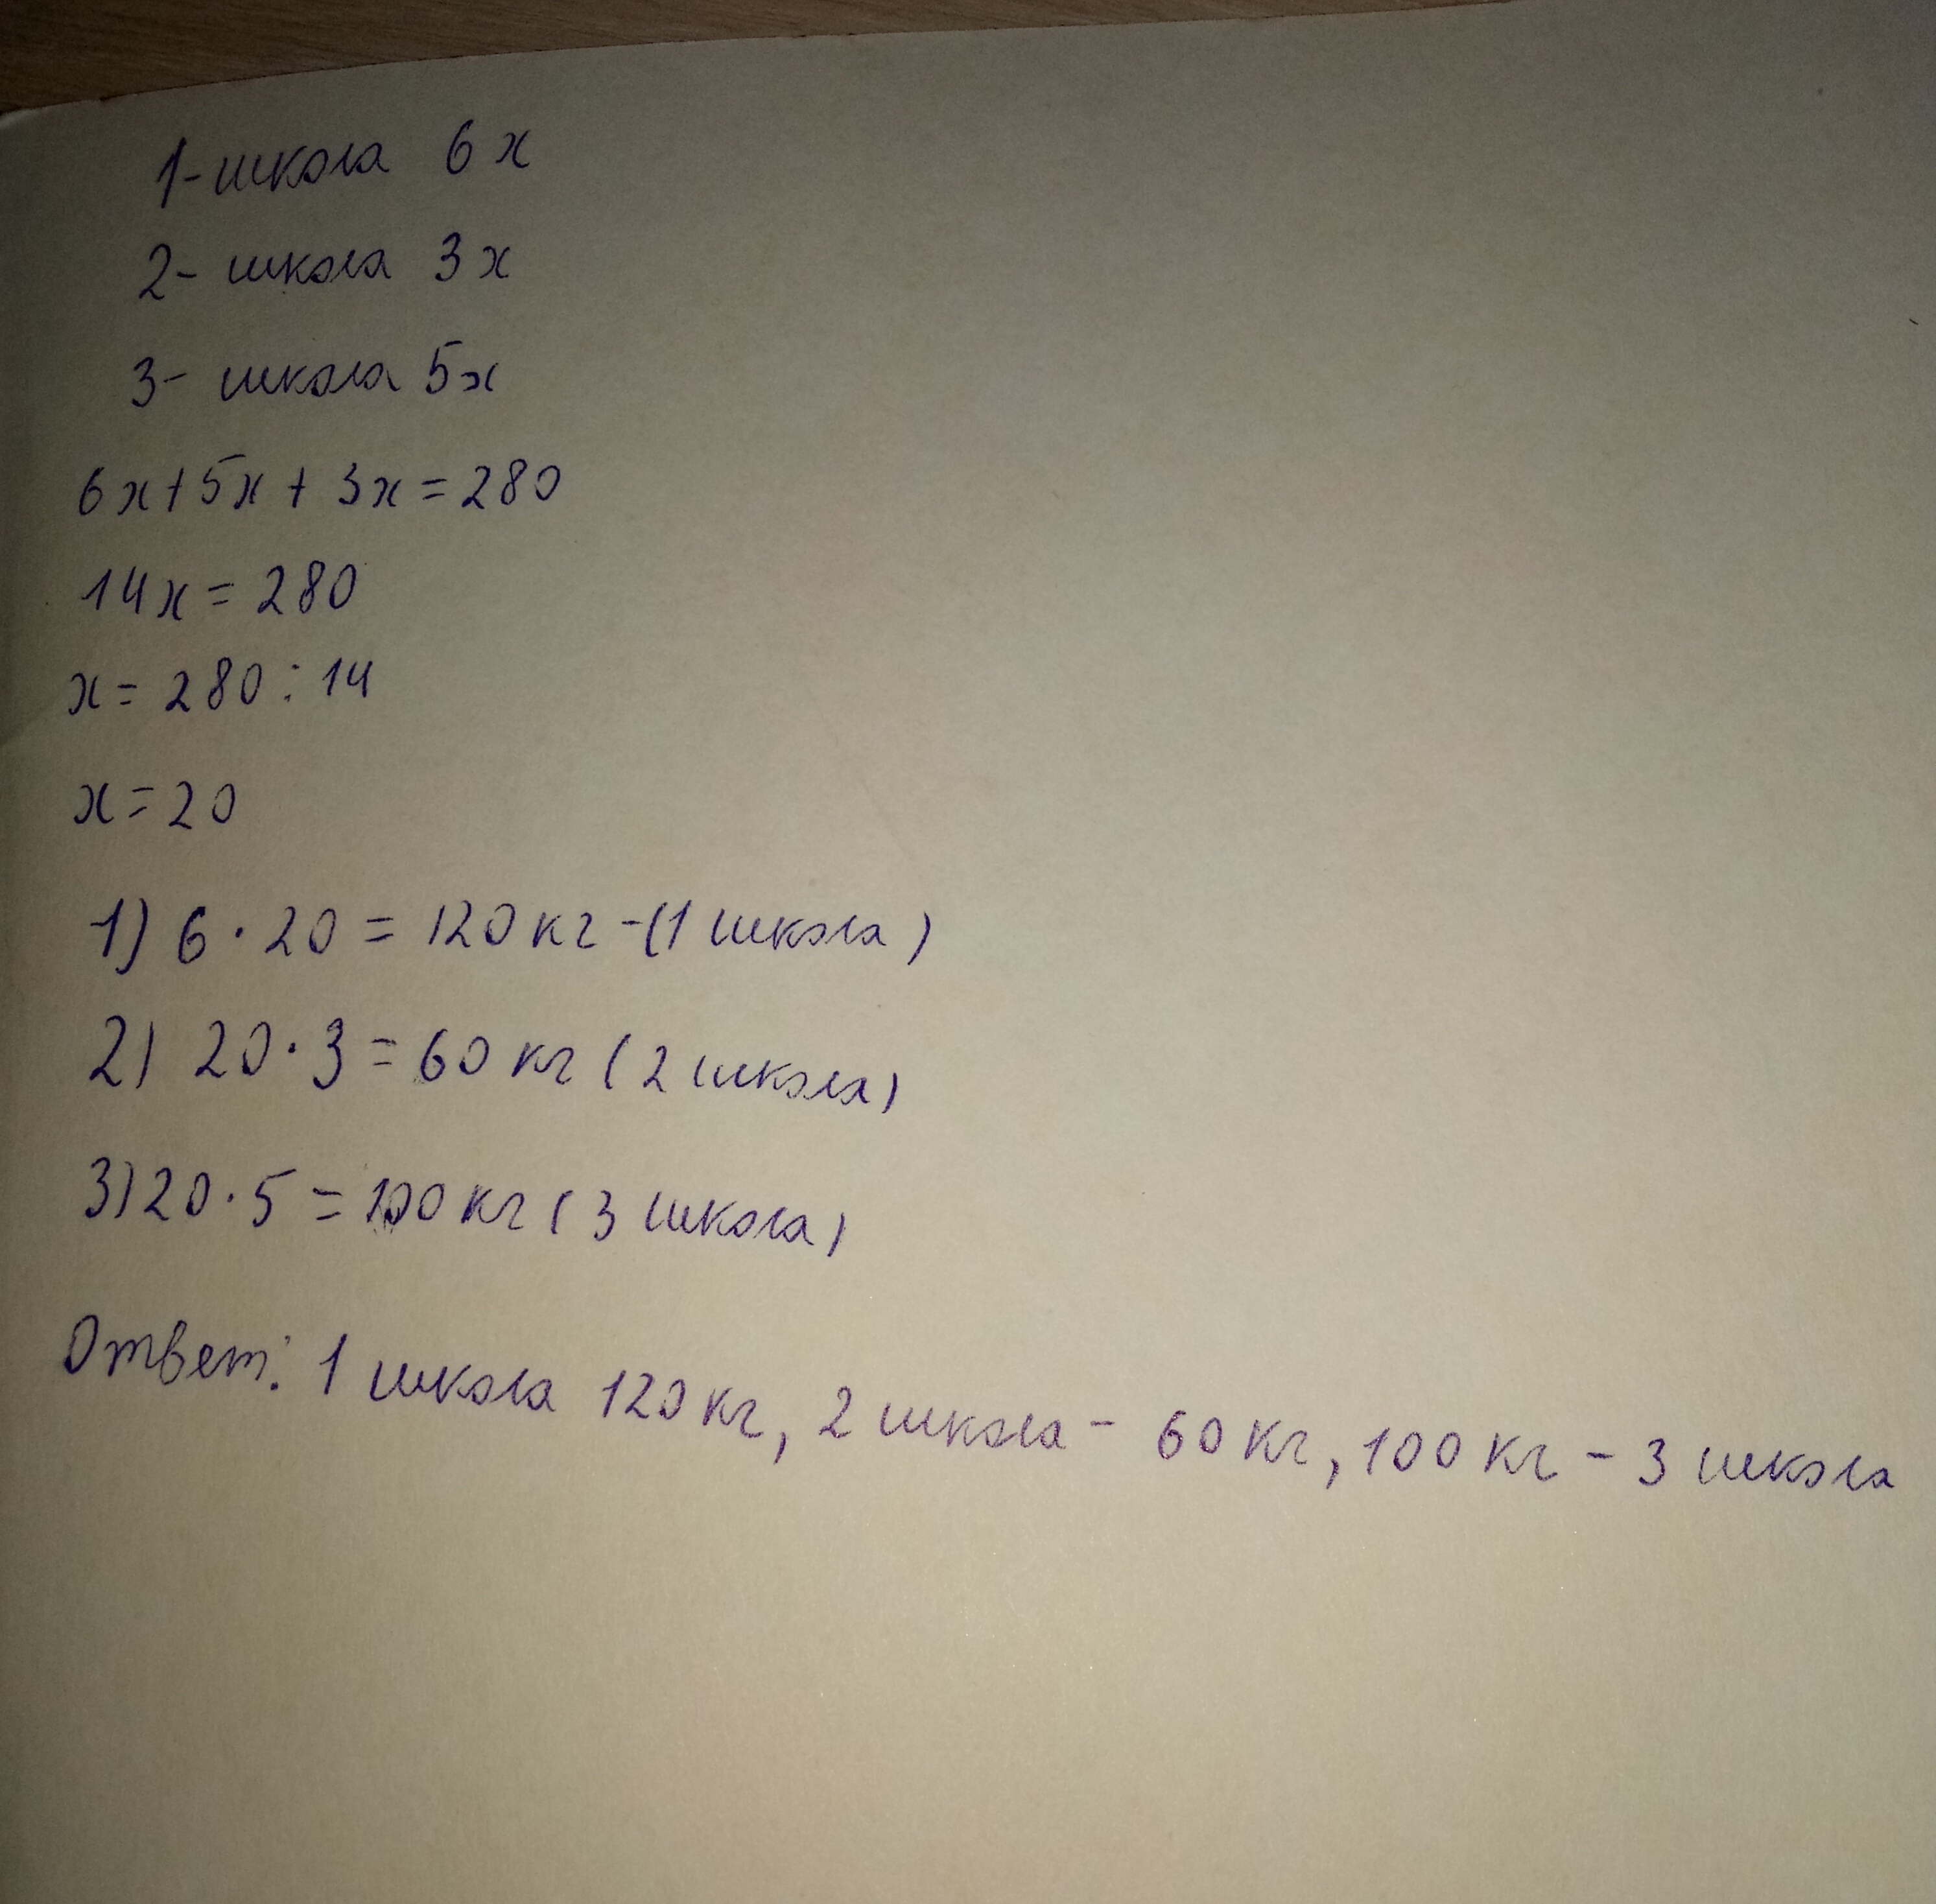 1-школа 6x
2- школа 3x
3- школа 5x
6x+5x+3x=280
14x=280
x=280:14
x=20
1) 6·20=120кг-(1 школа)
2) 20·3=60кг (2 школа)
3) 20·5=100кг (3 школа)
Ответ: 1 школа 120кг, 2 школа - 60кг, 100кг - 3 школа